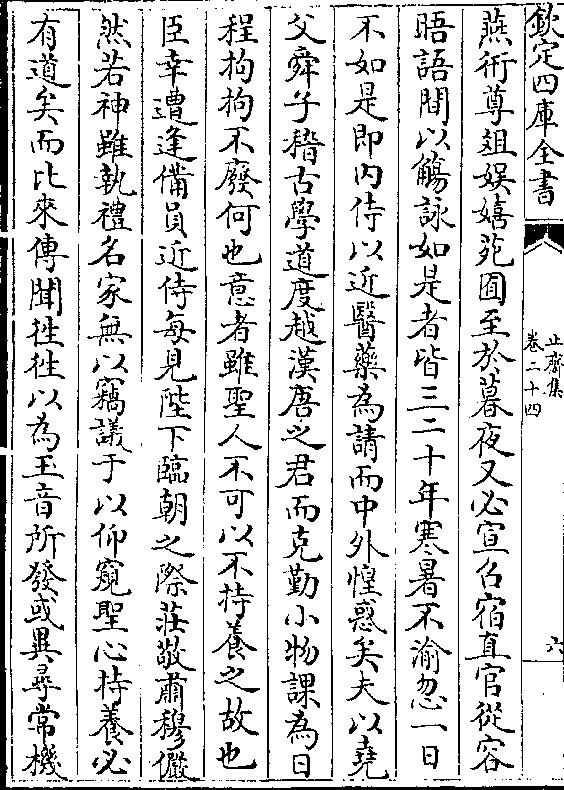 欽定四庫全書
止齋集
卷二十四
六
燕衎尊俎娱嬉苑囿至於暮夜又必宣召宿直官從容
晤語間以觴詠如是者皆三二十年寒暑不渝忽一日
不如是即内侍以近醫藥為請而中外惶惑矣夫以堯
父舜子稽古學道度越漢唐之君而克勤小物課為日
程拘拘不廢何也意者雖聖人不可以不持養之故也
臣幸遭逢備員近侍每見陛下臨朝之際莊敬肅穆儼
然若神雖執禮名家無以竊議于以仰窺聖心持養必
有道矣而比來傳聞徃徃以為玉音所發或異尋常機